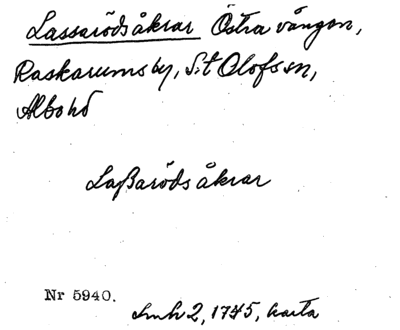 Lassarödsåkrar Östra vången,
Raskarums by, S:t Olofs sn,
Albo hd
Laßaröds åkrar
Nr 5940.
Lmh 2, 1745, karta